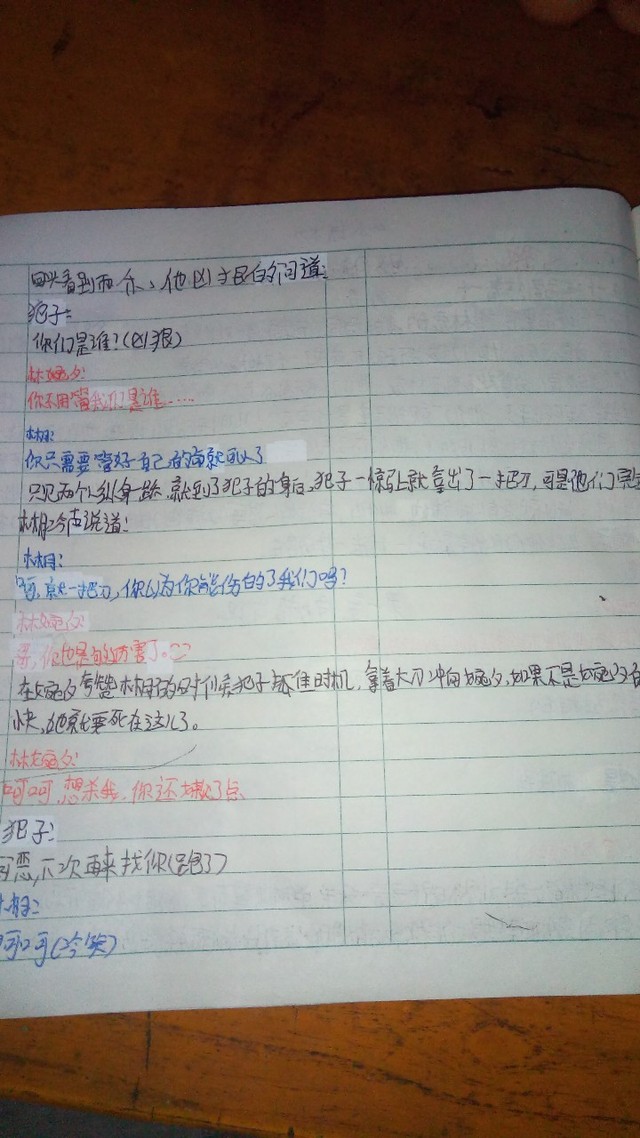 回头看到两个人，他凶狠的问道：
犯子：
你们是谁？(凶狠)
林婉夕：
你不用管我们是谁……
林月：
你只需要管好自己的命就可以了
只见两个人纵身一跃，就到了犯子的身后，犯子一惊马上就拿出了一把刀，可是他们完全
林月冷声说道：
林月：
呵，就一把刀，你以为你能伤的了我们吗？
林婉夕：
哥，你也是真的厉害了。
在婉夕夸赞林月的时候犯子瞅准时机，拿着大刀冲向婉夕，如果不是婉夕
快，她就要死在这儿了。
林婉夕：
呵呵，想杀我，你还嫩了点
犯子：
可恶，下次再来找你(跑了)
林月：
呵呵(冷笑)